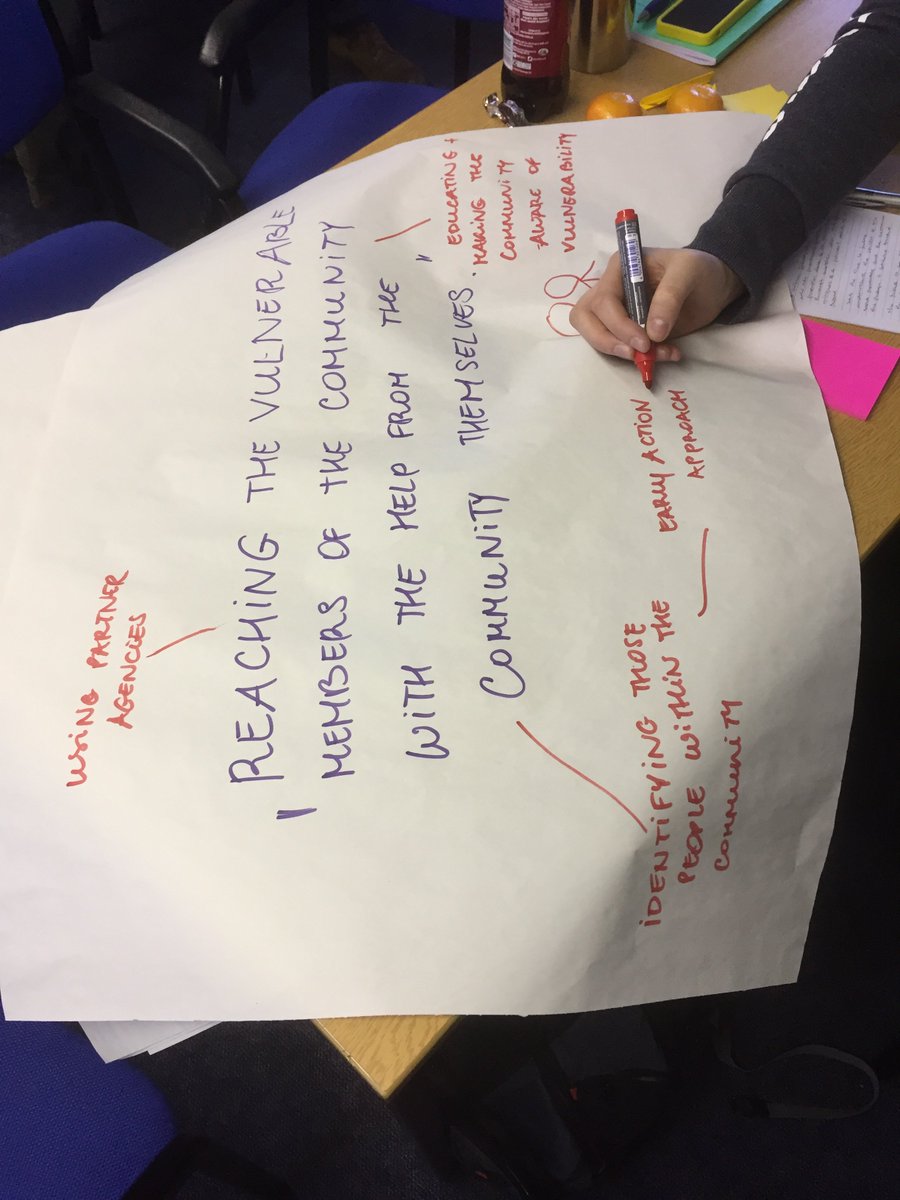 USING PARTNER
AGENCIES
"REACHING THE VULNERABLE
MEMBERS OF THE COMMUNITY
WITH THE HELP FROM THE
COMMUNITY THEMSELVES."
EDUCATING +
MAKING THE
COMMUNITY
AWARE OF
VULNERABILITY
IDENTIFYING THOSE
PEOPLE WITHIN THE
COMMUNITY
EARLY ACTION
APPROACH